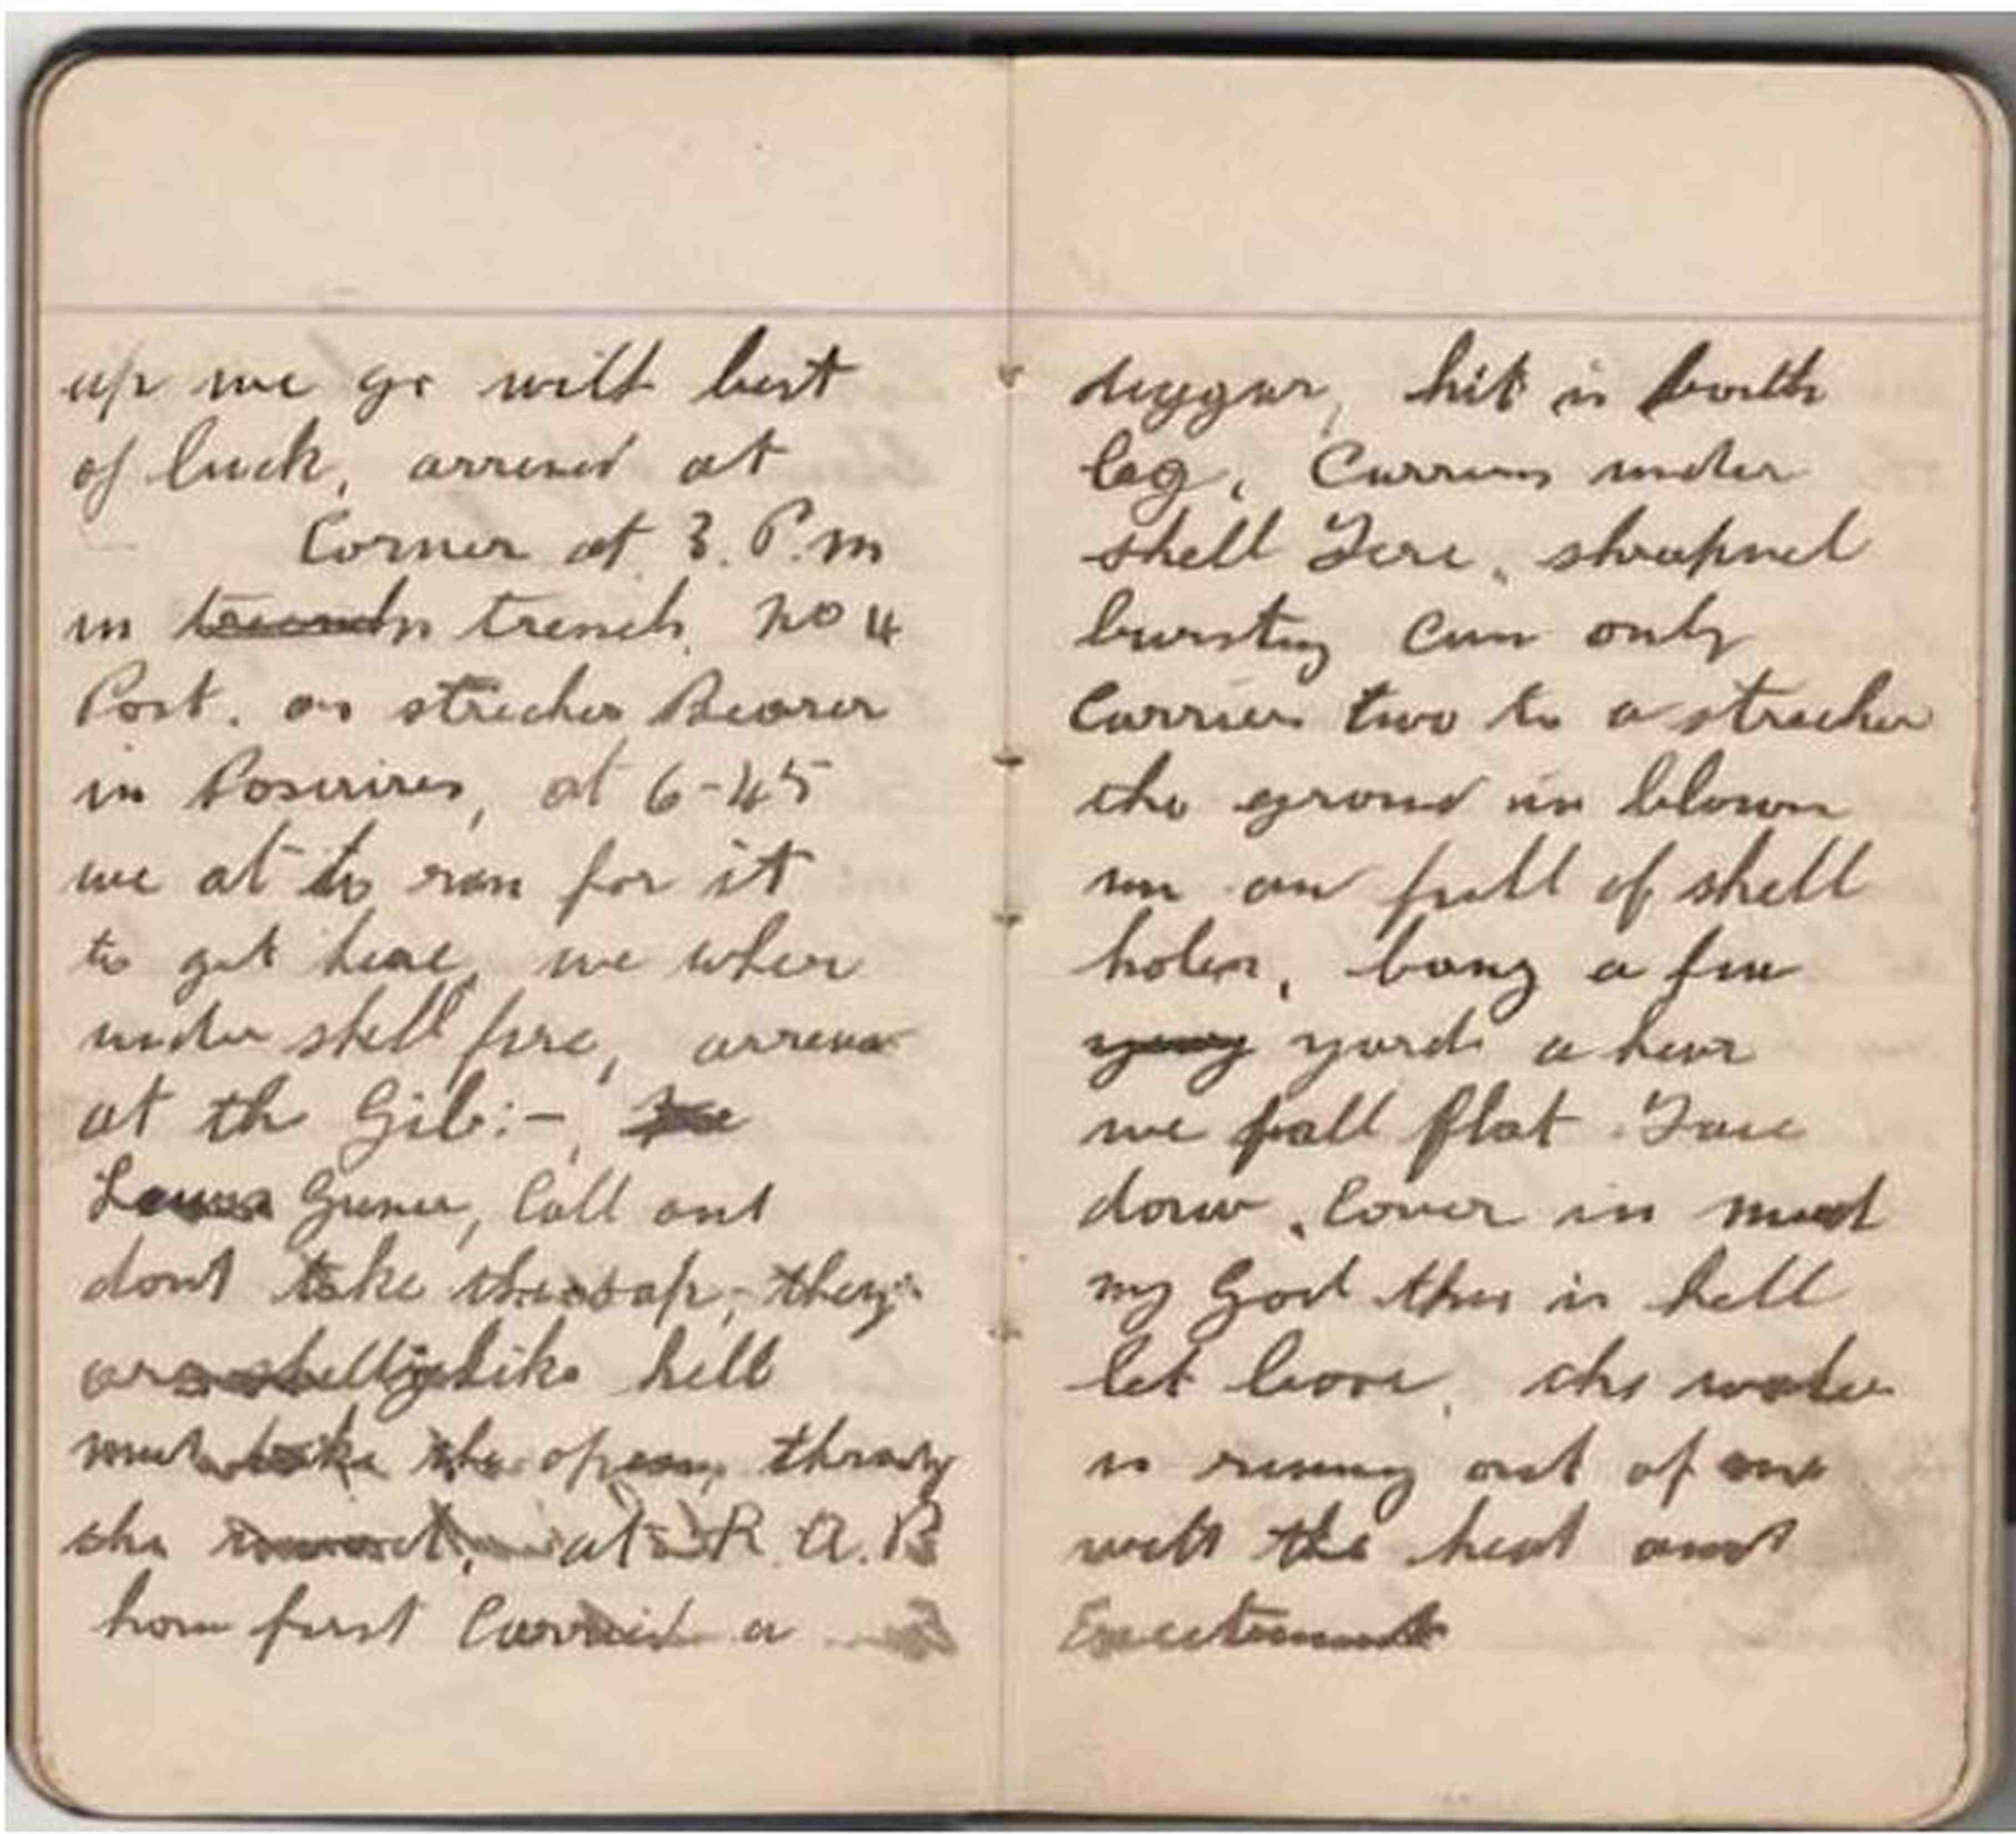 up we go with best
of luck, arrived at
Corner at 3. P.m
in trench. No 4
Post. as strecher Bearer
in Posierires, at 6-45
we at to ran for it
to get here, we wher
under shell fire, arrived
at th Gib:-,
Lewis Guner, Call out
dont take the sap, they
are shellig like hell
must take the open, throug
the at R. A. P
how first Carried a
diggar, hit in both
leg, Carrying under
shell Fire, shrapnel
bursting Can only
Carrier two to a strecher
the ground is blown
up and full of shell
holes, bang a few
yards a hear
we fall flat Face
down, Cover in mud
my God this is hell
let loose, the water
is runing out of me
with the heat and
Excitement